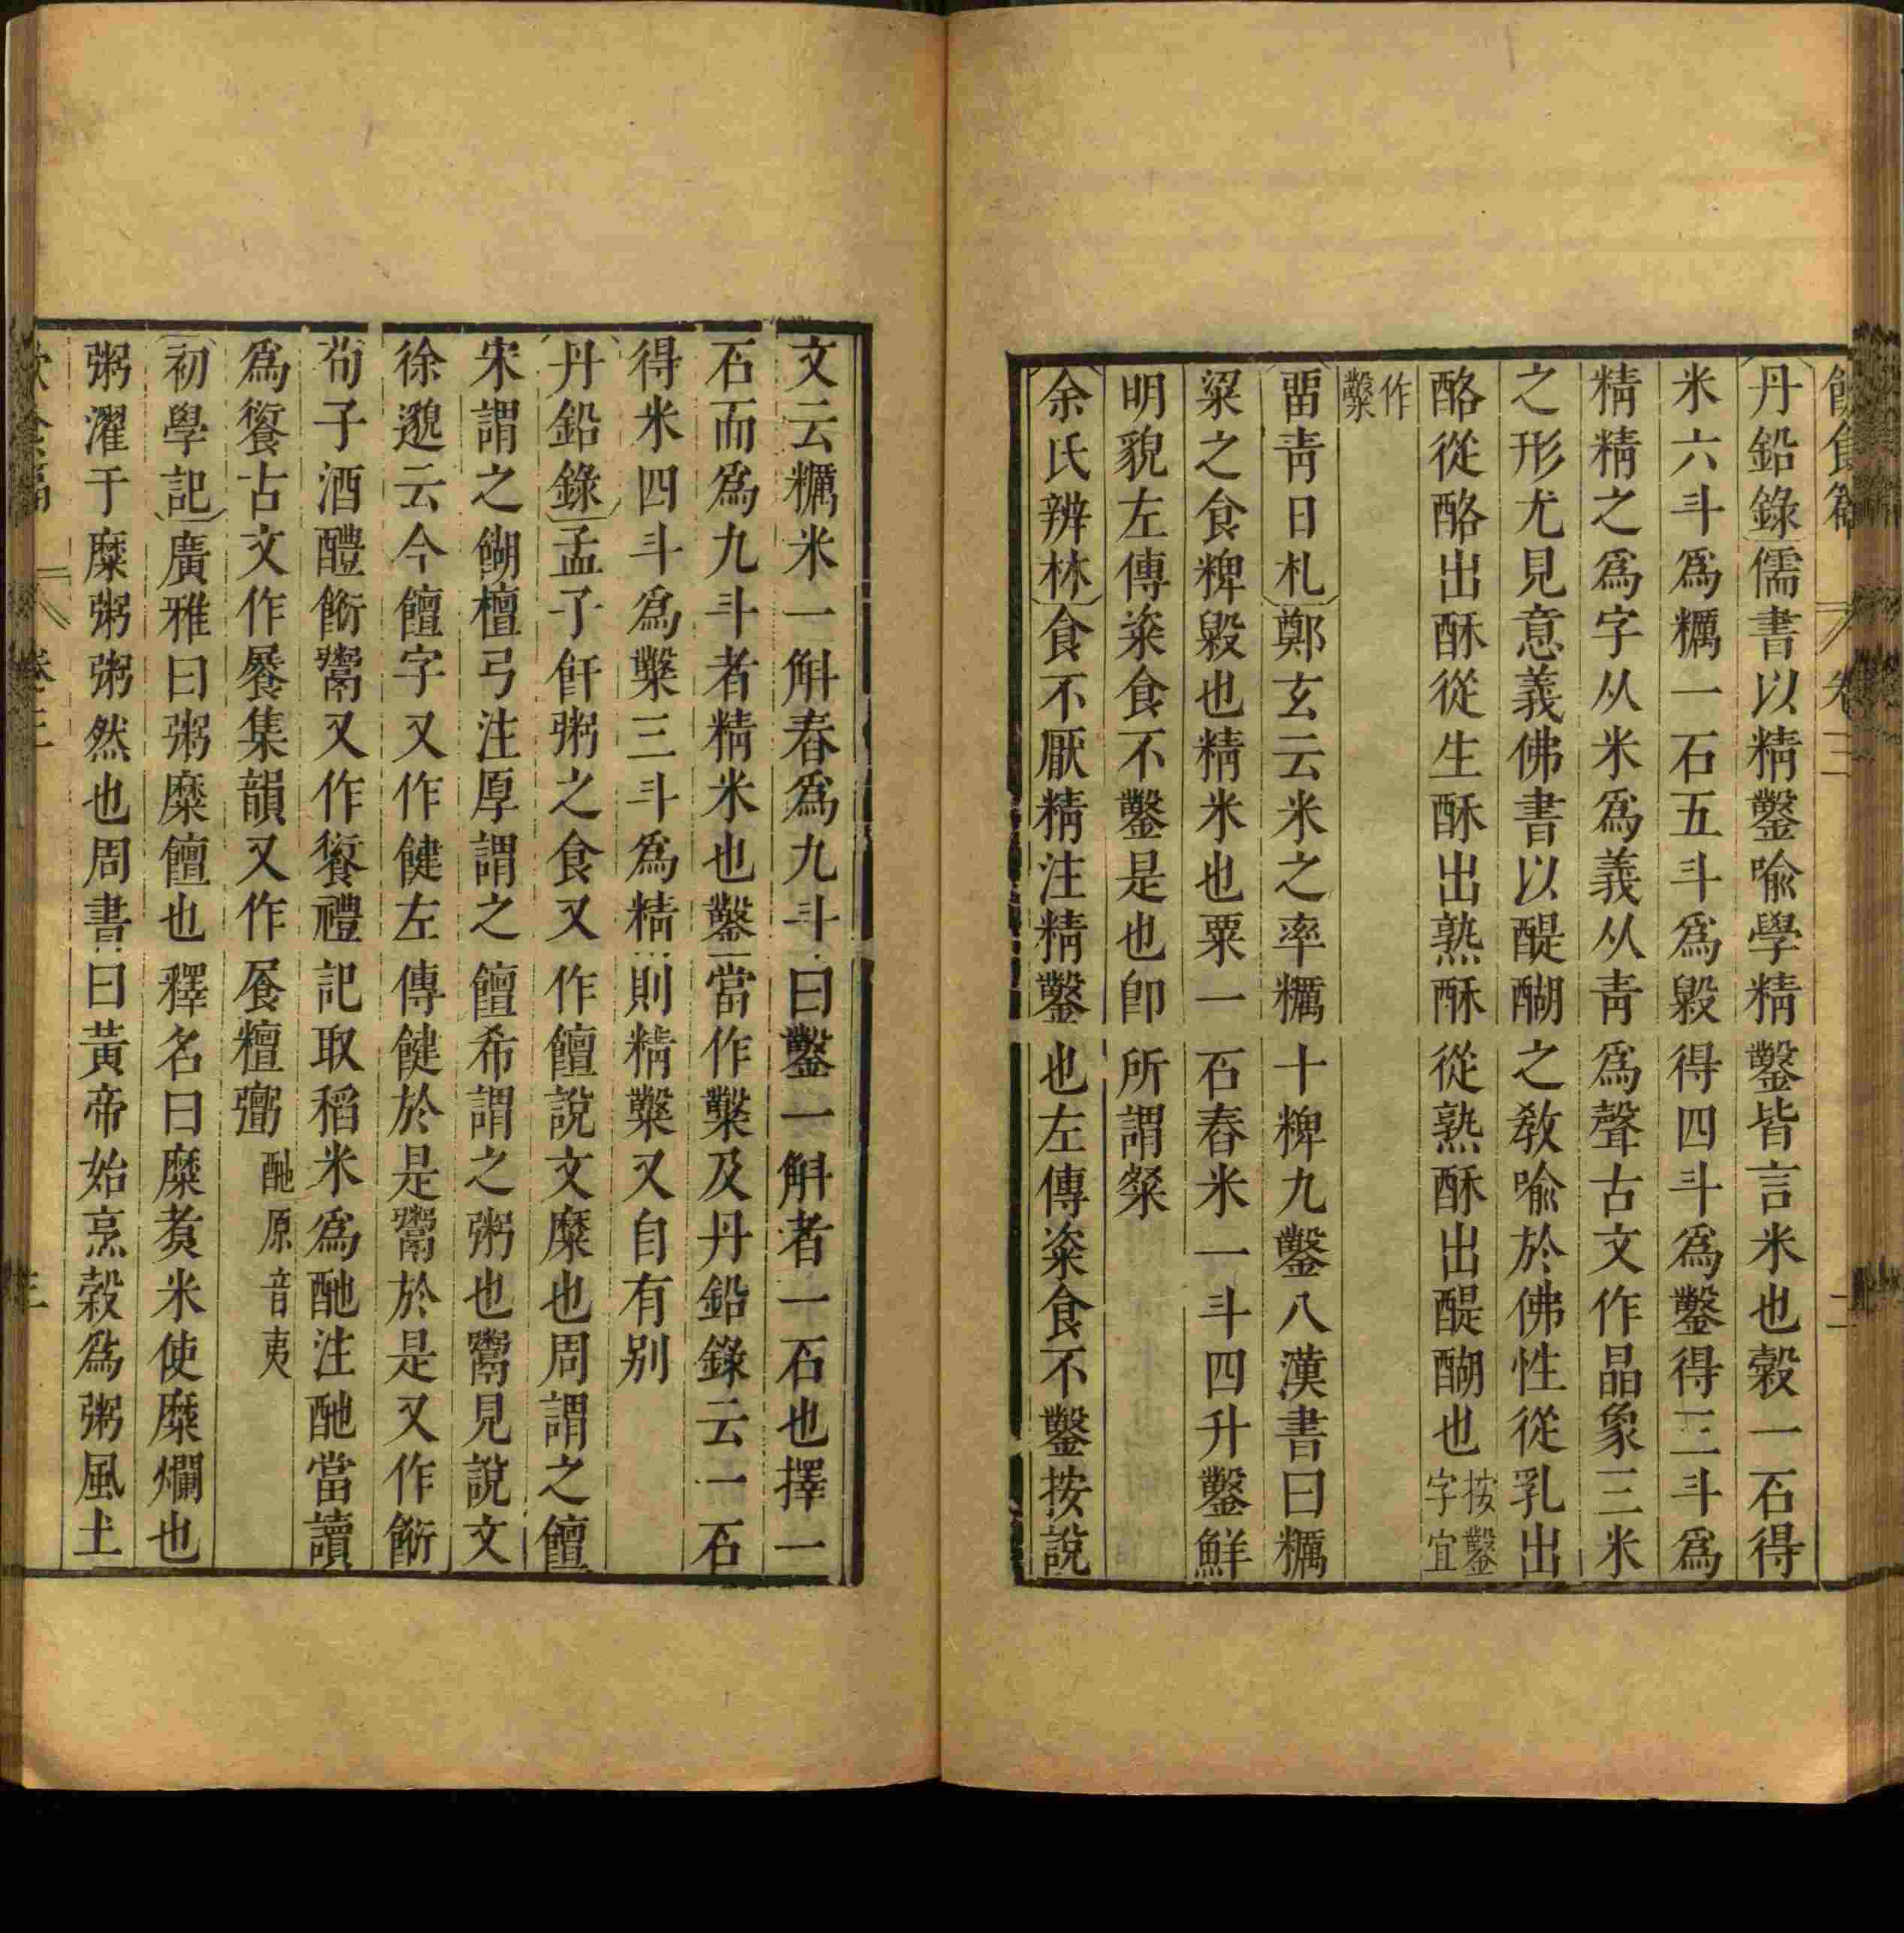 飲食篇 卷三 二
丹鉛錄儒書以精鑿喻學精鑿皆言米也穀一石得
米六斗爲糲一石五斗爲毇得四斗爲鑿得三斗爲
精精之爲字从米爲義从靑爲聲古文作晶象三米
之形尤見意義佛書以醍醐之敎喻於佛性從乳出
酪從酪出酥從生酥出熟酥從熟酥出醍醐也按鑿字宜
作糳
留靑日札鄭玄云米之率糲十粺九鑿八漢書曰糲
粱之食粺毇也精米也粟一石舂米一斗四升鑿鮮
明貌左傳粢食不鑿是也卽所謂粲
余氏辨林食不厭精注精鑿也左傳粢食不鑿按說
文云糲米一斛舂爲九斗曰鑿一斛者一石也擇一
石而爲九斗者精米也鑿當作糳及丹鉛錄云一石
得米四斗爲糳三斗爲精則精糳又自有别
丹鉛錄孟子飦粥之食又作饘說文糜也周謂之饘
宋謂之餬檀弓注厚謂之饘希謂之粥也鬻見說文
徐邈云今饘字又作餰左傳饘於是鬻於是又作餰
荀子酒醴餰鬻又作餐禮記取稻米爲酏注酏當讀
爲餐古文作餍集韻又作䬳糫䭈酏原音夷
初學記廣雅曰粥糜饘也釋名曰糜煮米使糜爛也
粥濯于糜粥粥然也周書曰黃帝始烹穀爲粥風土